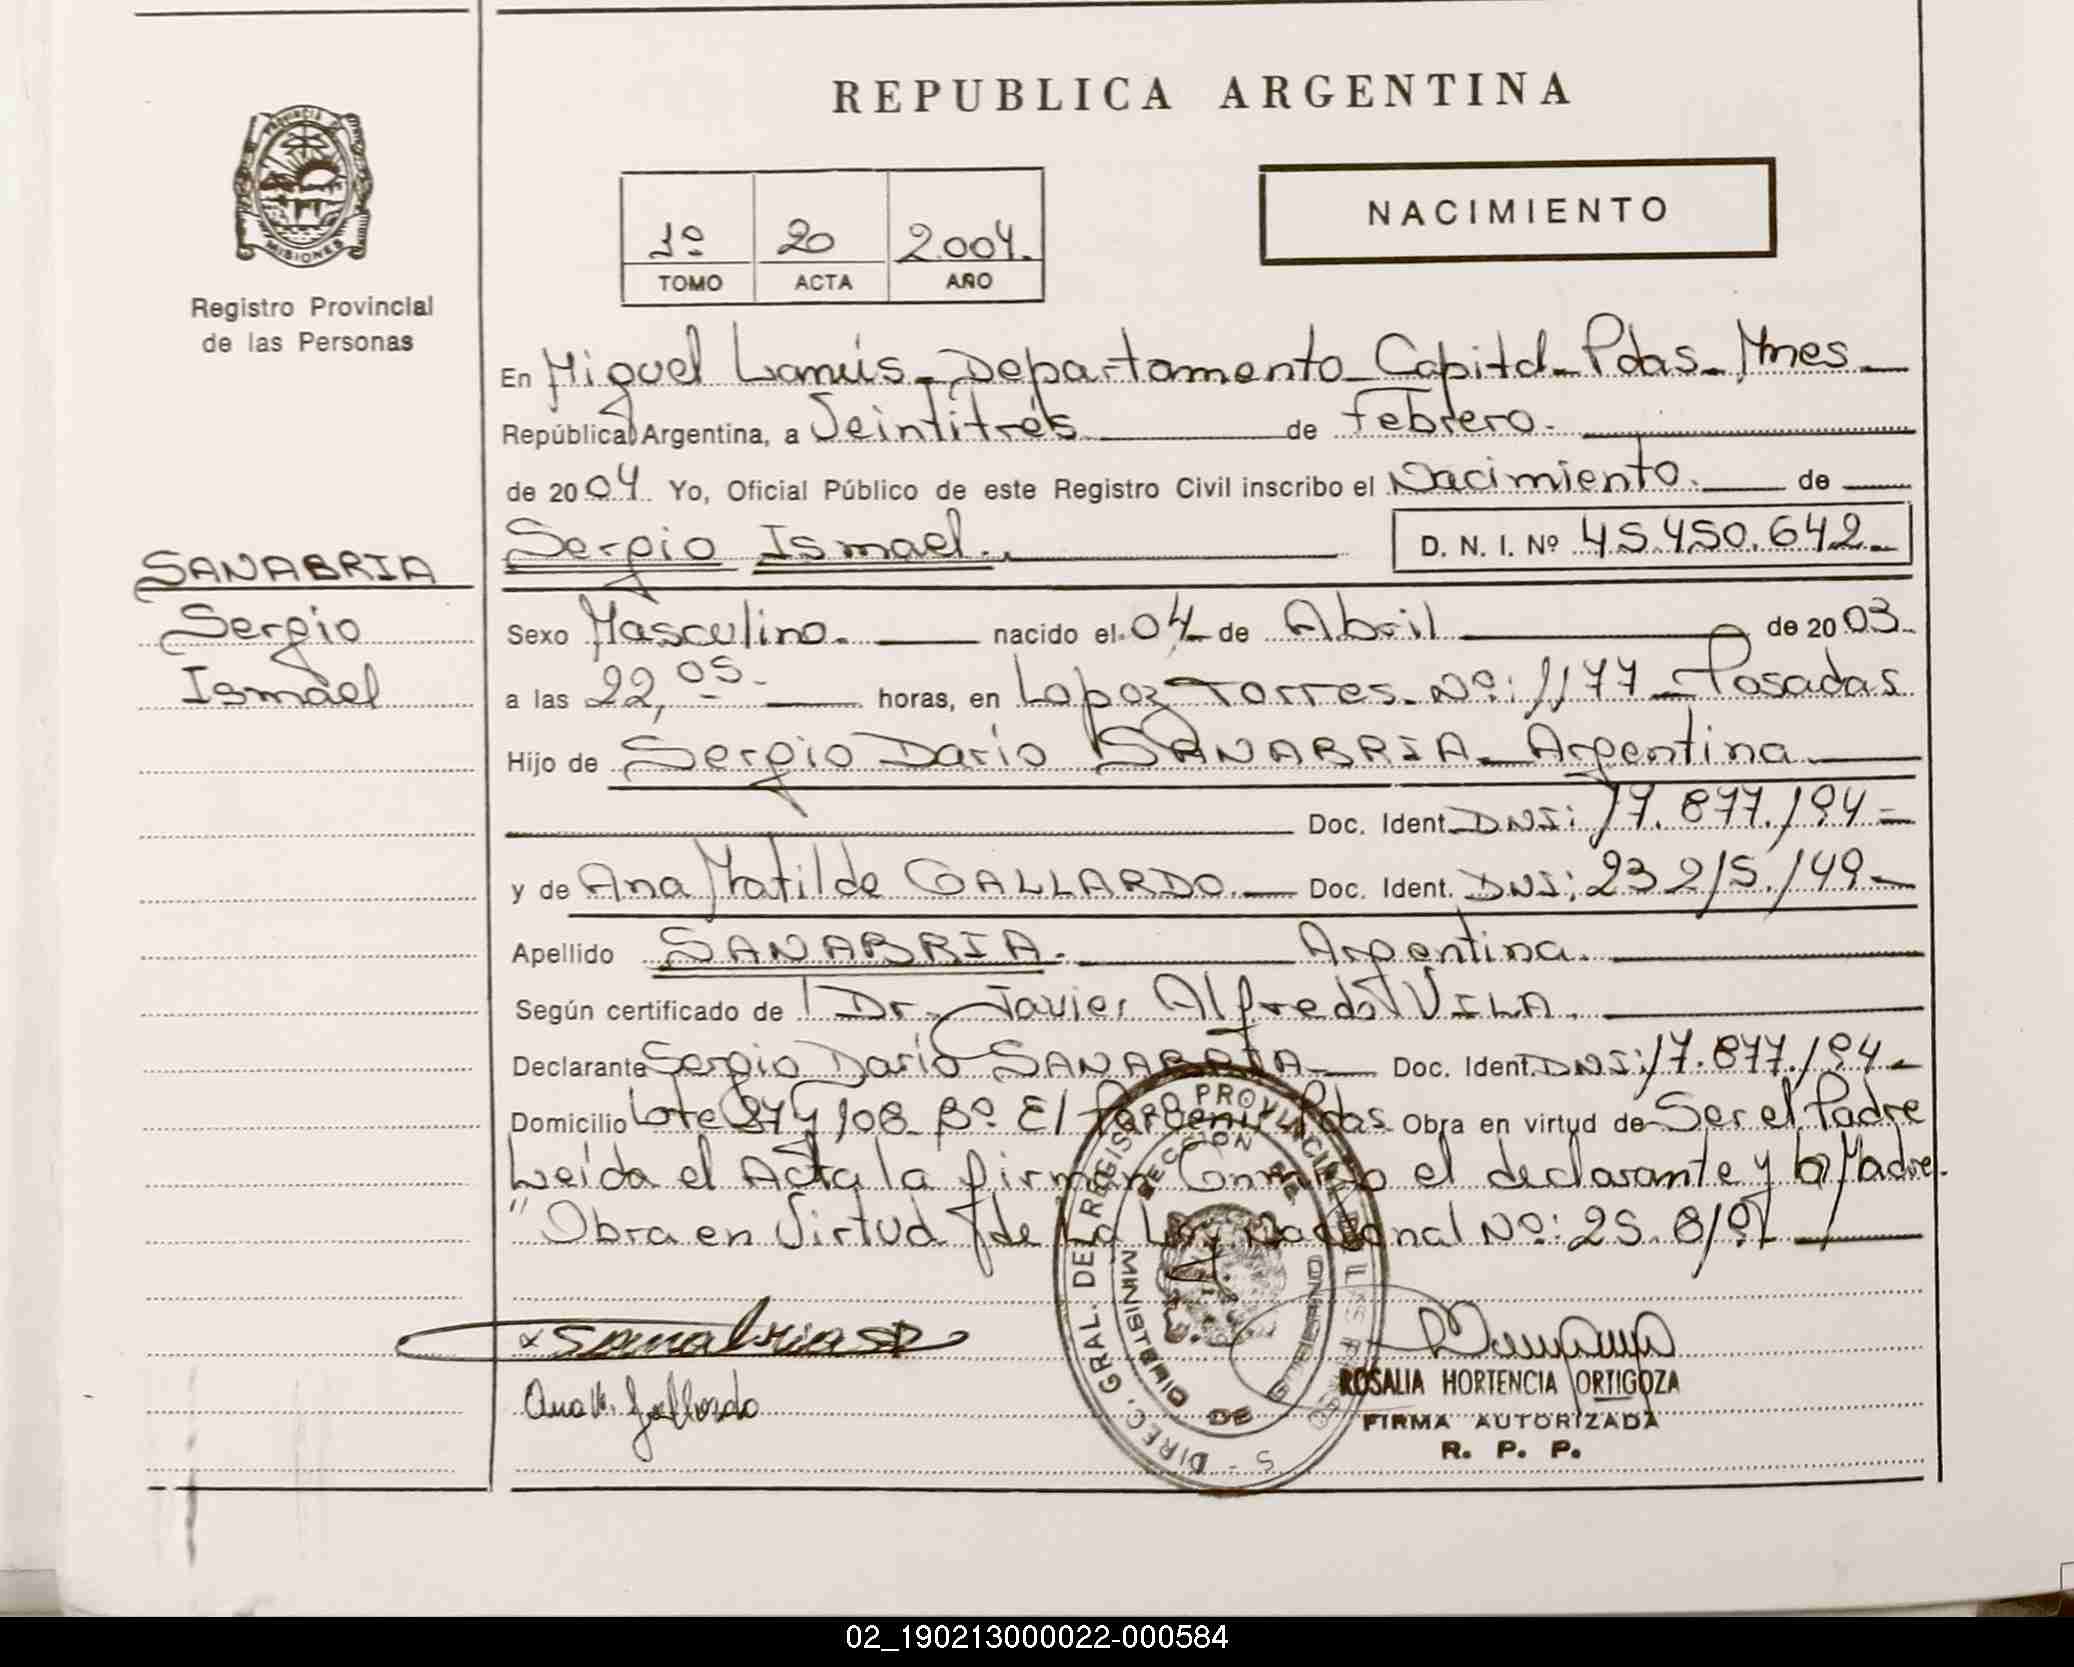 REPUBLICA ARGENTINA
PROVINCIA DE MISIONES
Registro Provincial
de las Personas
1º 20 2.004.
TOMO ACTA AÑO
NACIMIENTO
En Miguel Lanús_Departamento_Capital_Pdas_Mnes_
República Argentina, a Veintitrés de Febrero.
de 2004. Yo, Oficial Público de este Registro Civil inscribo el Nacimiento. de
Sergio Ismael. D. N. I. Nº 45.450.642_
SANABRIA
Sergio
Ismael
Sexo Masculino. nacido el 04 de Abril de 2003.
a las 22,05- horas, en Lopez Torres_Nº: 1177_Posadas
Hijo de Sergio Darío SANABRIA_Argentina
Doc. Ident. DNI: 17.877.194=
y de Ana Matilde GALLARDO. Doc. Ident. DNI: 23 215.149_
Apellido SANABRIA. Argentina.
Según certificado de Dr. Javier Alfredo VILA.
Declarante Sergio Darío SANABRIA Doc. Ident. DNI: 17.877.194_
Domicilio Lote 108_Bº El Porvenir Pdas. Obra en virtud de Ser el Padre
Leída el Acta la firman Conmigo el declarante y la Madre.
"Obra en Virtud de La Ley Nacional Nº: 25.819
DIREC. GRAL. DEL REGISTRO PROVINCIAL DE LAS PERSONAS
MINISTERIO DE GOBIERNO
x Sanabria SD
Ana M. Gallardo
ROSALIA HORTENCIA ORTIGOZA
FIRMA AUTORIZADA
R. P. P.
02_190213000022-000584